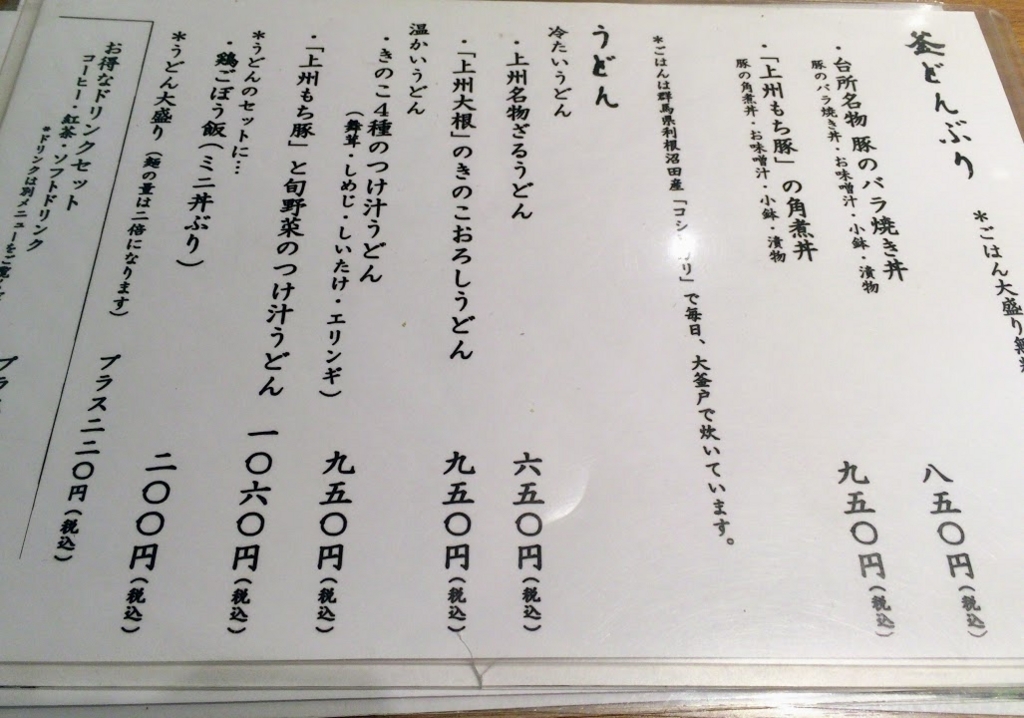 釜どんぶり
*ごはん大盛り無料
・台所名物 豚のバラ焼き丼
八五〇円(税込)
豚のバラ焼き丼・お味噌汁・小鉢・漬物
・「上州もち豚」の角煮丼
九五〇円(税込)
豚の角煮丼・お味噌汁・小鉢・漬物
*ごはんは群馬県利根沼田産「コシ リ」で毎日、大釜戸で炊いています。
うどん
冷たいうどん
・上州名物ざるうどん
六五〇円(税込)
・「上州大根」のきのこおろしうどん
九五〇円(税込)
温かいうどん
・きのこ4種のつけ汁うどん
(舞茸・しめじ・しいたけ・エリンギ)
九五〇円(税込)
・「上州もち豚」と旬野菜のつけ汁うどん
一〇六〇円(税込)
*うどんのセットに…
・鶏ごぼう飯(ミニ丼ぶり)
二〇〇円(税込)
*うどん大盛り(麺の量は二倍になります)
プラス二二〇円(税込)
お得なドリンクセット
コーヒー・紅茶・ソフトドリンク
*ドリンクは別メニューをご覧
プラ